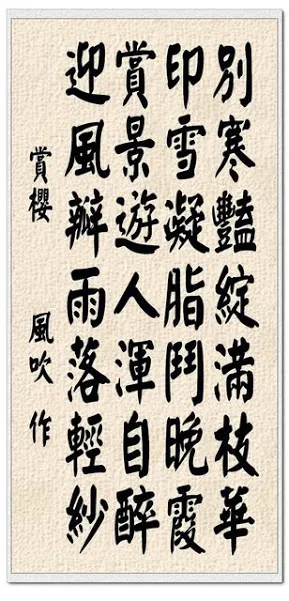 別寒豔綻滿枝華
印雪凝脂鬥晚霞
賞景遊人渾自醉
迎風瓣雨落輕紗
賞櫻 風吹 作